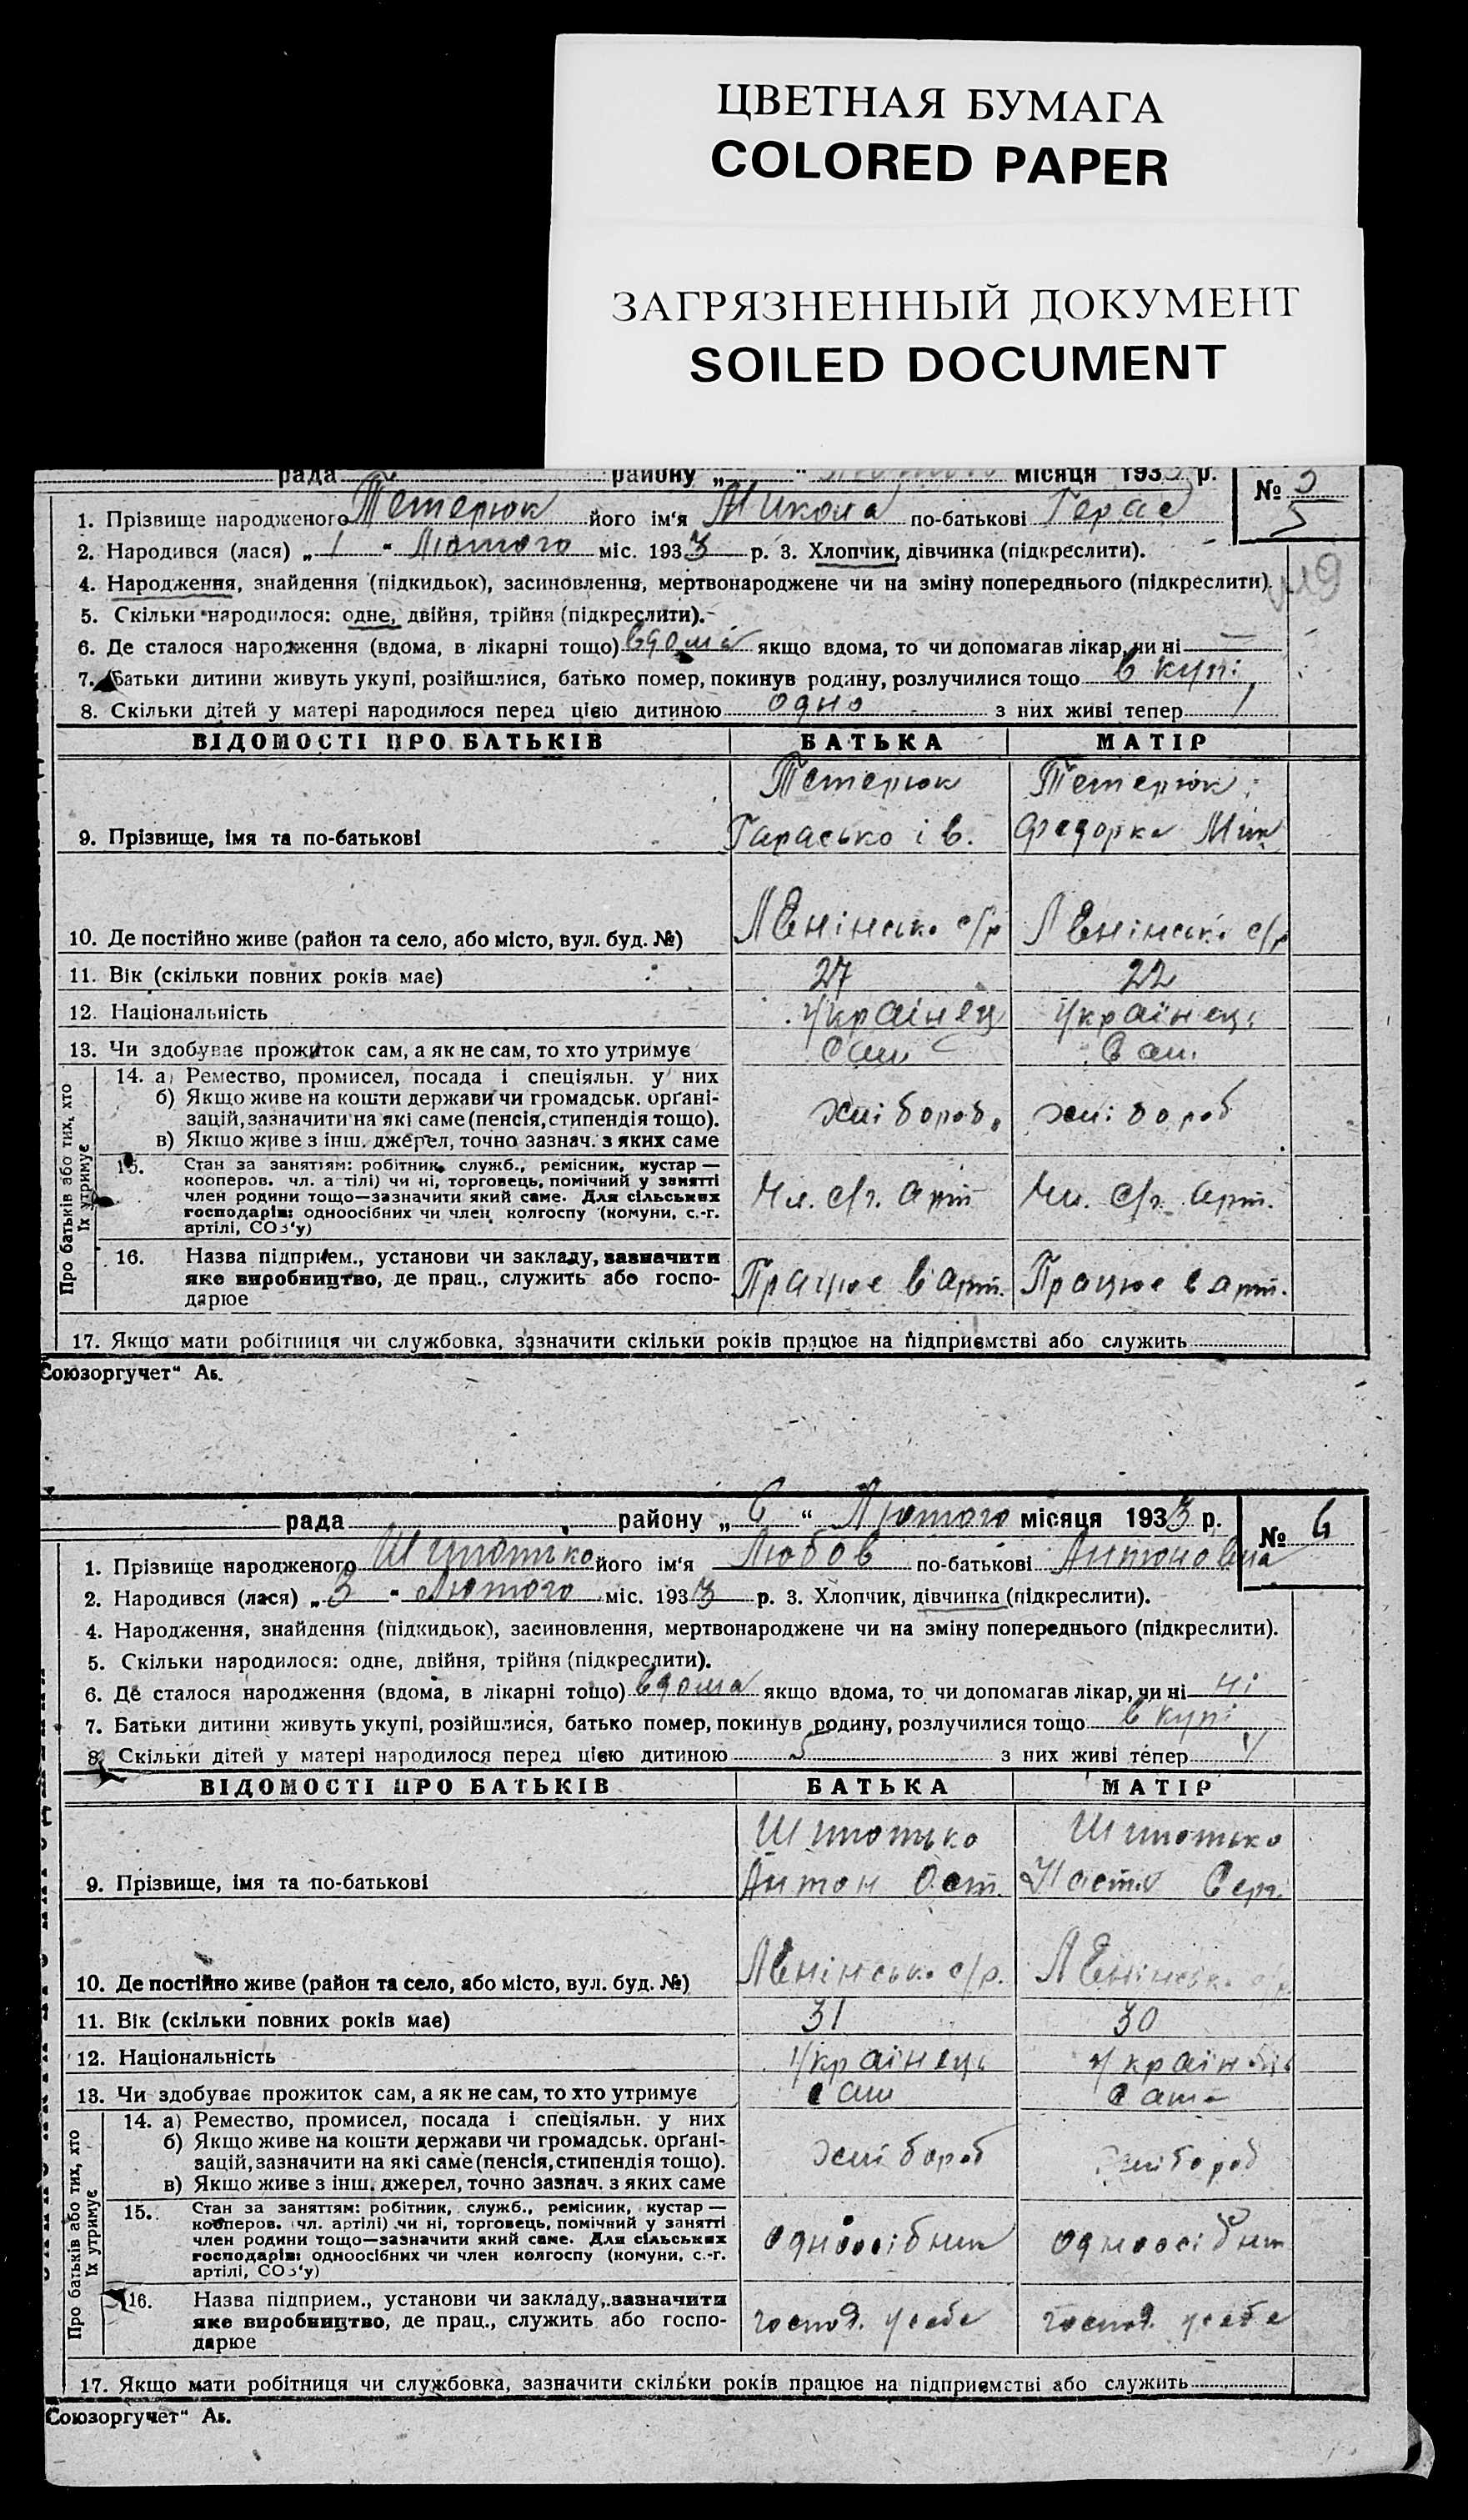 ЦВЕТНАЯ БУМАГА
COLORED PAPER
ЗАГРЯЗНЕННЫЙ ДОКУМЕНТ
SOILED DOCUMENT
рада району „ “ місяця 1933 р. № 5
1. Прізвище народженого Тетерюк його ім‘я Микола по-батькові Герас
5
2. Народився (лася) „ 1 “ Лютого міс. 1933 р. 3. Хлопчик, дівчинка (підкреслити).
4. Народження, знайдення (підкидьок), засиновлення, мертвонароджене чи на зміну попереднього (підкреслити).
5. Скільки народилося: одне, двійня, трійня (підкреслити).
6. Де сталося народження (вдома, в лікарні тощо) вдома якщо вдома, то чи допомагав лікар, чи ні —
7. Батьки дитини живуть укупі, розійшлися, батько помер, покинув родину, розлучилися тощо в купі
8. Скільки дітей у матері народилося перед цією дитиною одно з них живі тепер 1
ВІДОМОСТІ ПРО БАТЬКІВ БАТЬКА МАТІР
Тетерюк Тетерюк
9. Прізвище, імя та по-батькові Гарасько ів. Федорка Мик
10. Де постійно живе (район та село, або місто, вул. буд. №) Ленінськ. с/р Ленінськ. с/р
11. Вік (скільки повних років має) 27 22
12. Національність Українец Українець
13. Чи здобуває прожиток сам, а як не сам, то хто утримує сам сам.
Про батьків або тих, хто їх утримує
14. а) Ремество, промисел, посада і спеціяльн. у них
б) Якщо живе на кошти держави чи громадськ. органі-
зацій, зазначити на які саме (пенсія, стипендія тощо). хлібороб. хлібороб
в) Якщо живе з інш. джерел, точно зазнач. з яких саме
15. Стан за заняттям: робітник, служб., ремісник, кустар —
кооперов. чл. артілі) чи ні, торговець, помічний у занятті
член родини тощо—зазначити який саме. Для сільських Чл. с/г. арт Чл. с/г. арт.
господарів: одноосібних чи член колгоспу (комуни, с.-г.
артілі, СОЗ‘у)
16. Назва підприєм., установи чи закладу, зазначити
яке виробництво, де прац., служить або госпо- Працює в арт. Працює в арт.
дарює
17. Якщо мати робітниця чи службовка, зазначити скільки років працює на підприємстві або служить
Союзоргучет“ Аъ.
рада району „ 6 “ Лютого місяця 1933 р. № 6
1. Прізвище народженого Шипотько його ім‘я Любов по-батькові Антоновна
2. Народився (лася) „ 3 “ Лютого міс. 1933 р. 3. Хлопчик, дівчинка (підкреслити).
4. Народження, знайдення (підкидьок), засиновлення, мертвонароджене чи на зміну попереднього (підкреслити).
5. Скільки народилося: одне, двійня, трійня (підкреслити).
6. Де сталося народження (вдома, в лікарні тощо) вдома якщо вдома, то чи допомагав лікар, чи ні ні
7. Батьки дитини живуть укупі, розійшлися, батько помер, покинув родину, розлучилися тощо в купі
8. Скільки дітей у матері народилося перед цією дитиною 5 з них живі тепер 4
ВІДОМОСТІ ПРО БАТЬКІВ БАТЬКА МАТІР
Шипотько Шипотько
9. Прізвище, імя та по-батькові Антон Ост. Настя Серг.
10. Де постійно живе (район та село, або місто, вул. буд. №) Ленінськ. с/р. Ленінськ. с/р.
11. Вік (скільки повних років має) 31 30
12. Національність Українець Українець
13. Чи здобуває прожиток сам, а як не сам, то хто утримує сам сама
Про батьків або тих, хто їх утримує
14. а) Ремество, промисел, посада і спеціяльн. у них
б) Якщо живе на кошти держави чи громадськ. органі-
зацій, зазначити на які саме (пенсія, стипендія тощо). хлібороб хлібороб
в) Якщо живе з інш. джерел, точно зазнач. з яких саме
15. Стан за заняттям: робітник, служб., ремісник, кустар —
кооперов. чл. артілі) чи ні, торговець, помічний у занятті
член родини тощо—зазначити який саме. Для сільських одноосібник одноосібник
господарів: одноосібних чи член колгоспу (комуни, с.-г.
артілі, СОЗ‘у)
16. Назва підприєм., установи чи закладу, зазначити
яке виробництво, де прац., служить або госпо- господ. у себе господ. у себе
дарює
17. Якщо мати робітниця чи службовка, зазначити скільки років працює на підприємстві або служить
Союзоргучет“ Аъ.